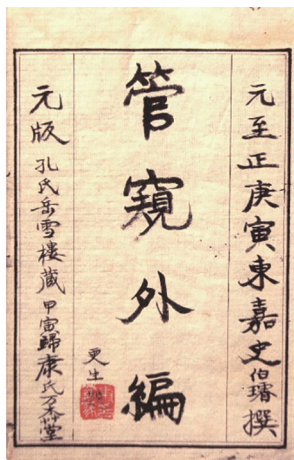 元至正庚寅東嘉史伯璿撰
管窺外編
元版 孔氏岳雪樓藏 甲寅歸康氏萬木草堂
更生